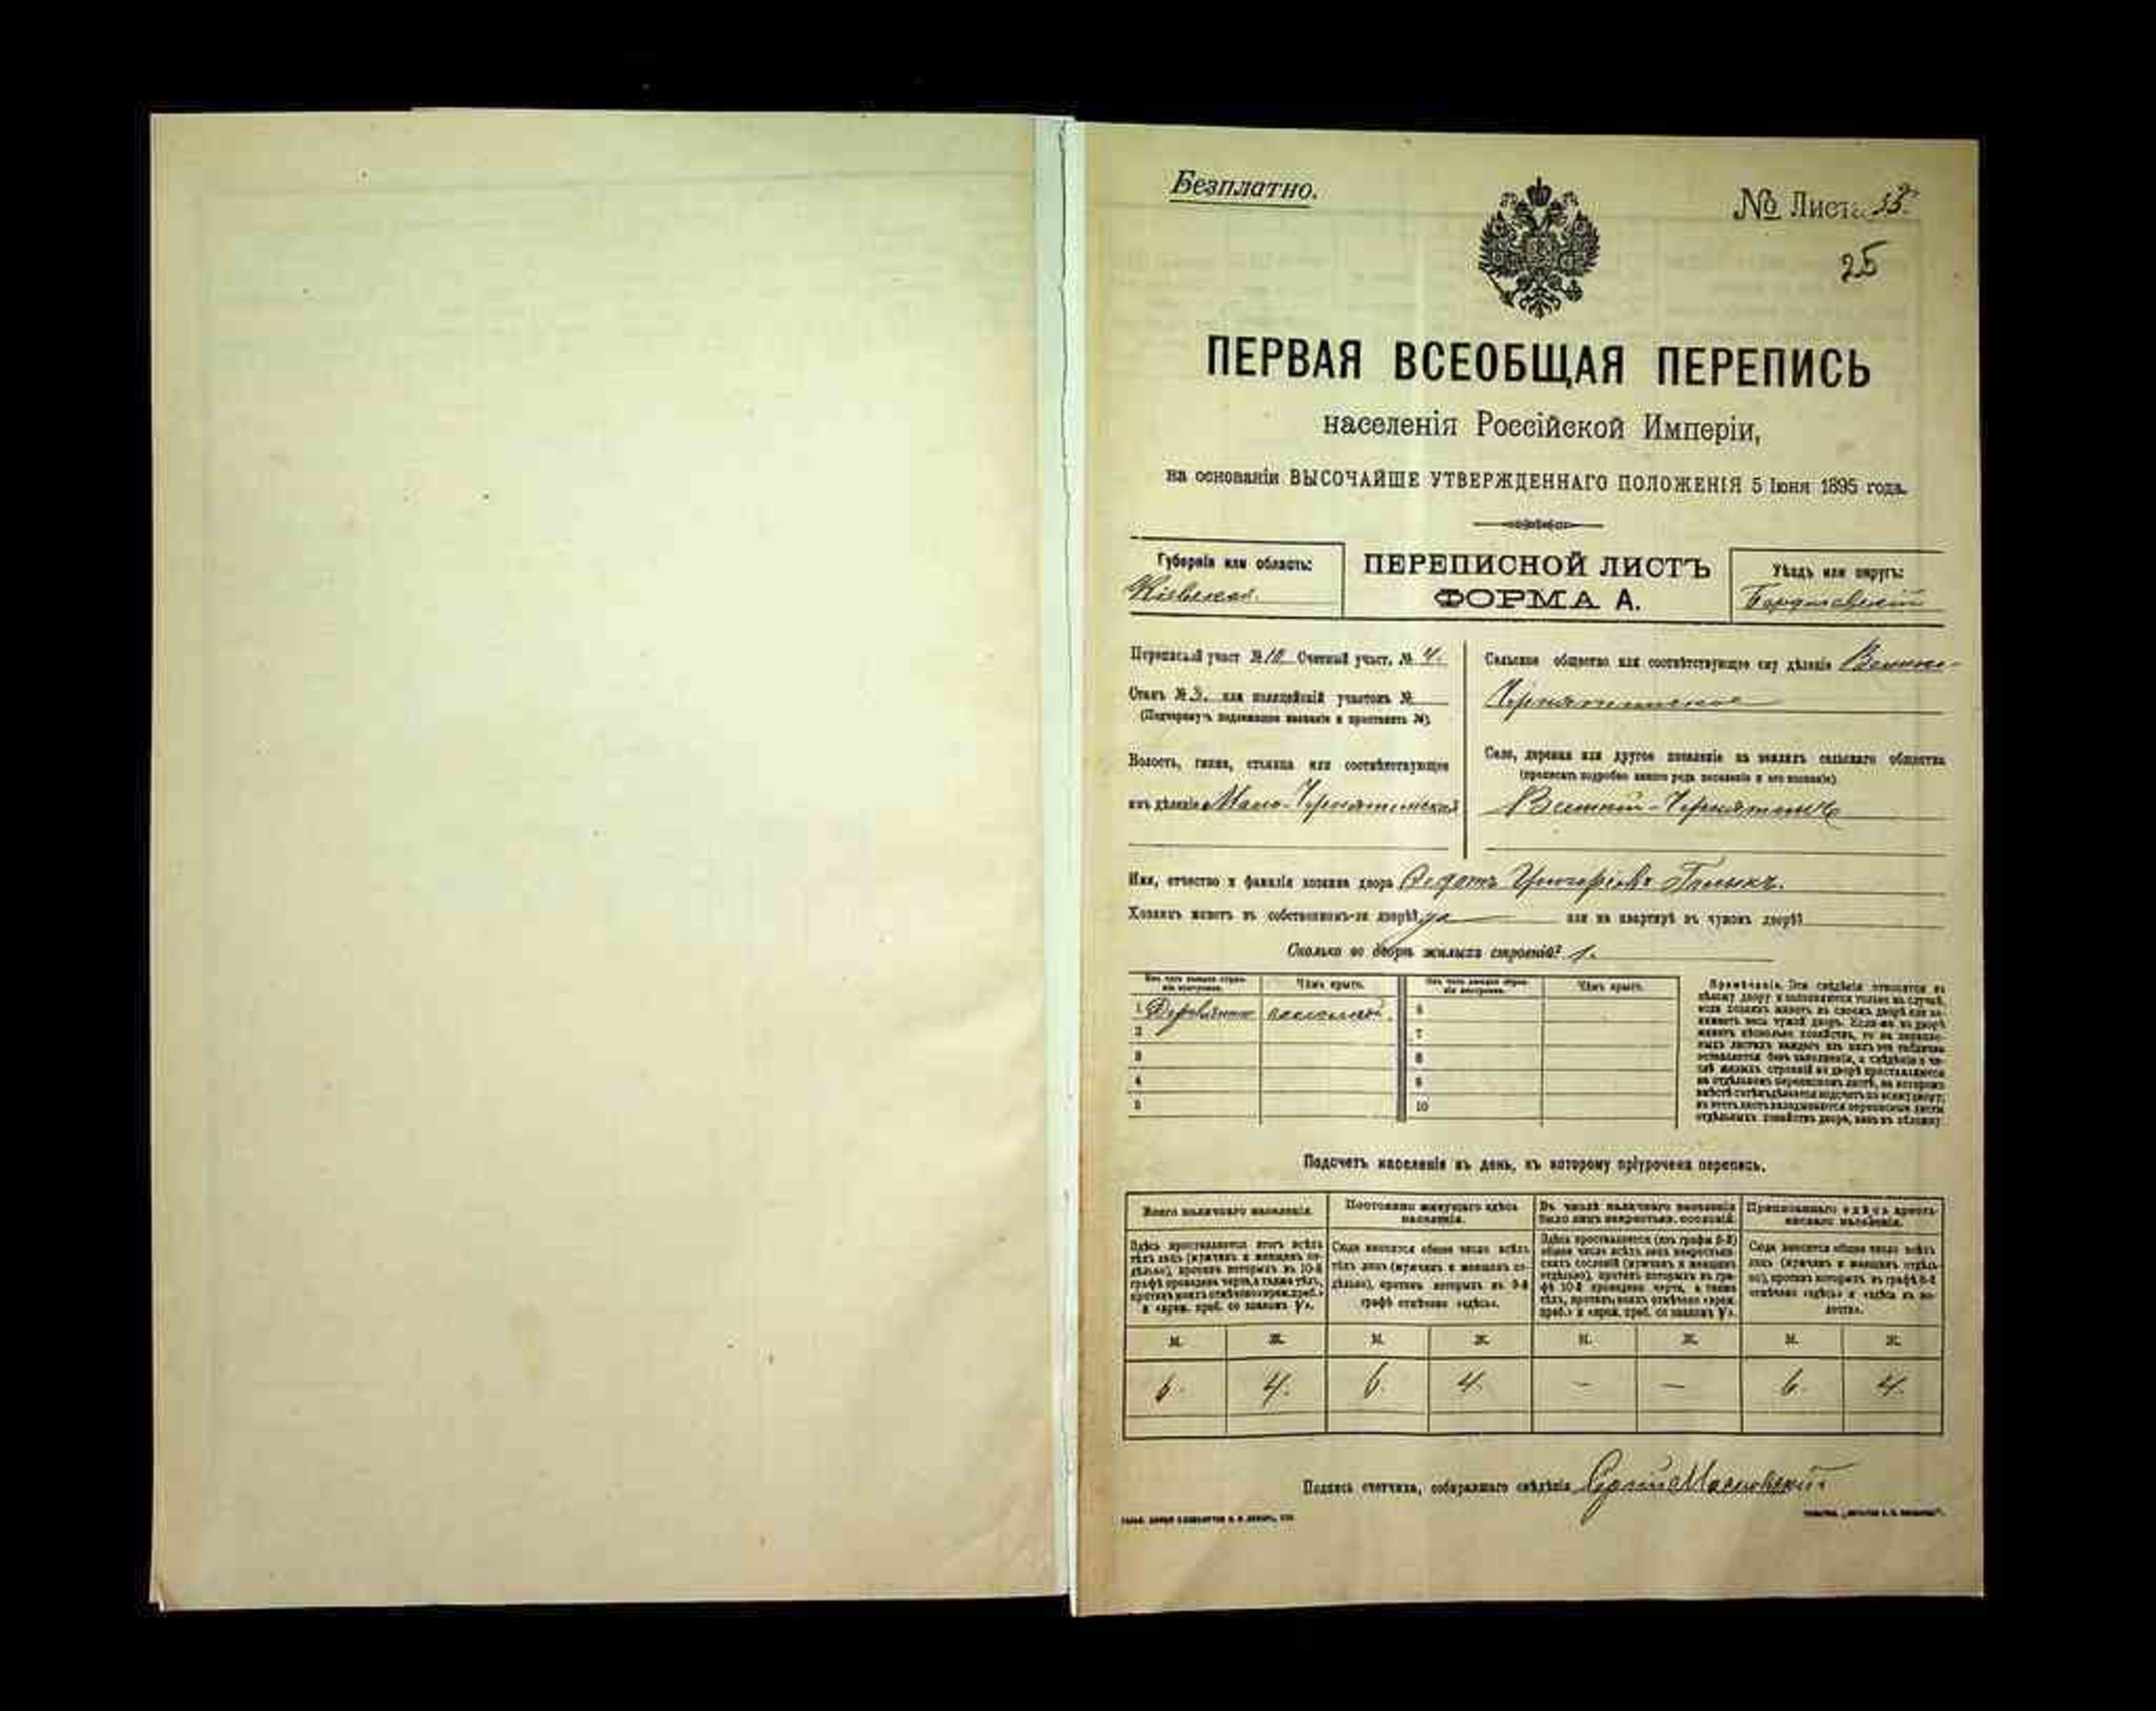 Безплатно.
№ Листа
25
ПЕРВАЯ ВСЕОБЩАЯ ПЕРЕПИСЬ
населенія Россійской Имперіи,
на основаніи ВЫСОЧАЙШЕ УТВЕРЖДЕННАГО ПОЛОЖЕНІЯ 5 Іюня 1895 года.
Губернія или область:
Кіевская.
ПЕРЕПИСНОЙ ЛИСТЪ
ФОРМА А.
Уѣздъ или округъ:
Бердичевскій
Переписной участ. №10 Счетный участ. № 4.
Станъ № 3. или полицейскій участокъ №
(Подчеркнуть подлежащее названіе и проставить №).
Волость, гмина, станица или соотвѣтствующее
имъ дѣленіе Мало-Чернятинская
Сельское общество или соотвѣтствующее ему дѣленіе Велико-
Чернятинское
Село, деревня или другое поселеніе на земляхъ сельскаго общества
(прописать подробно какого рода поселеніе и его названіе)
Великій-Чернятинъ
Имя, отчество и фамилія хозяина двора Федотъ Григоріевъ
Хозяинъ живетъ въ собственномъ-ли дворѣ? да или на квартирѣ въ чужомъ дворѣ?
Сколько во дворѣ жилыхъ строеній? 1.
Изъ чего каждое строеніе построено. Чѣмъ крыто. Изъ чего каждое строеніе построено. Чѣмъ крыто.
1 соломой. 6
2 7
3 8
4 9
5 10
Примѣчаніе. Эти свѣдѣнія относятся къ
цѣлому двору и заполняются только въ случаѣ,
если хозяинъ живетъ въ своемъ дворѣ или за-
нимаетъ весь чужой дворъ. Если-же въ дворѣ
живетъ нѣсколько хозяйствъ, то на перепис-
ныхъ листахъ каждаго изъ нихъ эта табличка
оставляется безъ заполненія, а свѣдѣнія о чи-
слѣ жилыхъ строеній во дворѣ проставляются
на отдѣльномъ переписномъ листѣ, на которомъ
вмѣстѣ съ тѣмъ дѣлается подсчетъ по всему двору;
въ этотъ листъ вкладываются переписные листы
отдѣльныхъ хозяйствъ двора, какъ въ обложку.
Подсчетъ населенія въ день, къ которому пріурочена перепись.
Всего наличнаго населенія.
Здѣсь проставляется итогъ всѣхъ
тѣхъ лицъ (мужчинъ и женщинъ от-
дѣльно), противъ которыхъ въ 10-й
графѣ проведена черта, а также тѣхъ,
противъ коихъ отмѣчено «врем. преб.»
и «врем. преб. со знакомъ V».
Постоянно живущаго здѣсь
населенія.
Сюда вносится общее число всѣхъ
тѣхъ лицъ (мужчинъ и женщинъ от-
дѣльно), противъ которыхъ въ 9-й
графѣ отмѣчено «здѣсь».
Въ числѣ наличнаго населенія
было лицъ некрестьян. сословій.
Здѣсь проставляется (изъ графы 8-й)
общее число всѣхъ лицъ некрестьян-
скихъ сословій (мужчинъ и женщинъ
отдѣльно), противъ которыхъ въ гра-
фѣ 10-й проведена черта, а также
тѣхъ, противъ коихъ отмѣчено «врем.
преб.» и «врем. преб. со знакомъ V».
Приписаннаго здѣсь кресть-
янскаго населенія.
Сюда вносится общее число всѣхъ
лицъ (мужчинъ и женщинъ отдѣль-
но), противъ которыхъ въ графѣ 8-й
отмѣчено «здѣсь» и «здѣсь въ во-
лости».
М. Ж. М. Ж. М. Ж. М. Ж.
6. 4. 6 4. – – 6. 4.
Подпись счетчика, собиравшаго свѣдѣнія Сергій Масловскій